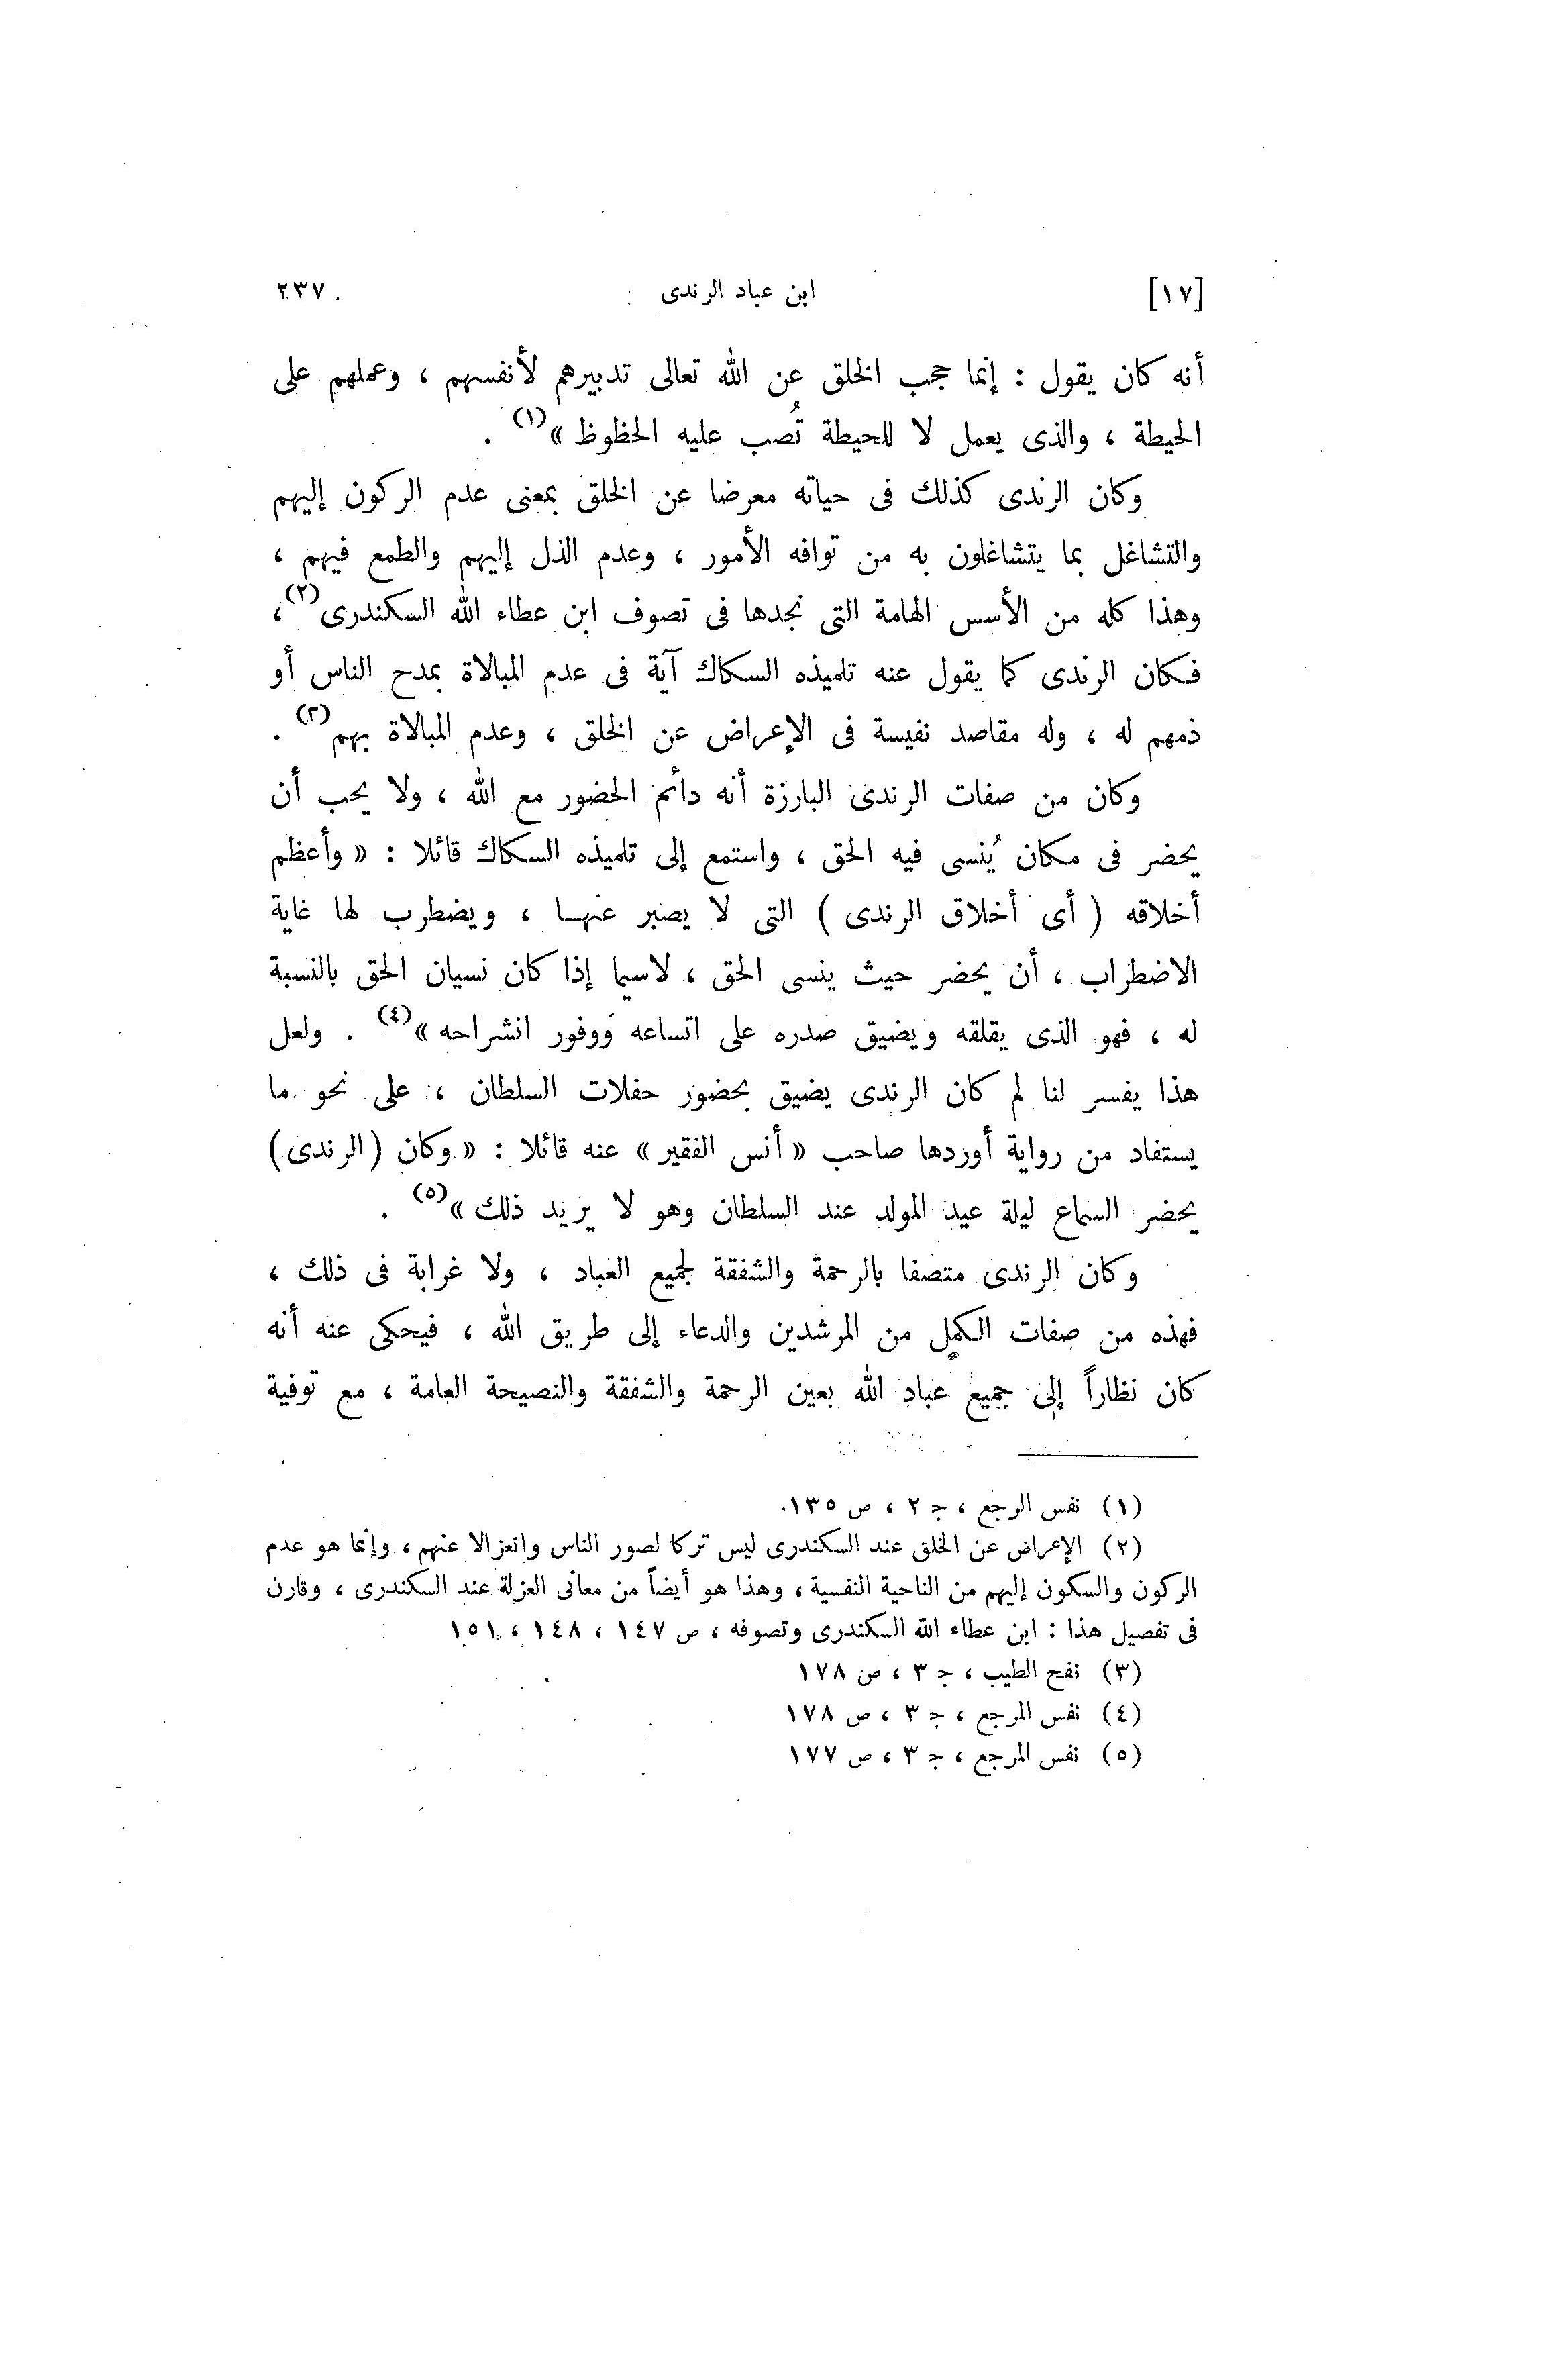 [١٧] ابن عباد الرندى ٢٣٧
أنه كان يقول : إنما حجب الخلق عن الله تعالى تدبيرهم لأنفسهم ، وعملهم على
الحيطة ، والذى يعمل لا للحيطة تُصب عليه الحظوظ »(١) .
وكان الرندى كذلك فى حياته معرضا عن الخلق بمعنى عدم الركون إليهم
والتشاغل بما يتشاغلون به من توافه الأمور ، وعدم الذل إليهم والطمع فيهم ،
وهذا كله من الأسس الهامة التى نجدها فى تصوف ابن عطاء الله السكندرى(٢) ،
فكان الرندى كما يقول عنه تلميذه السكاك آية فى عدم المبالاة بمدح الناس أو
ذمهم له ، وله مقاصد نفيسة فى الإعراض عن الخلق ، وعدم المبالاة بهم(٣) .
وكان من صفات الرندى البارزة أنه دائم الحضور مع الله ، ولا يحب أن
يحضر فى مكان يُنسى فيه الحق ، واستمع إلى تلميذه السكاك قائلا : « وأعظم
أخلاقه ( أى أخلاق الرندى ) التى لا يصبر عنها ، ويضطرب لها غاية
الاضطراب ، أن يحضر حيث ينسى الحق ، لاسيما إذا كان نسيان الحق بالنسبة
له ، فهو الذى يقلقه ويضيق صدره على اتساعه ووفور انشراحه »(٤) . ولعل
هذا يفسر لنا لم كان الرندى يضيق بحضور حفلات السلطان ، على نحو ما
يستفاد من رواية أوردها صاحب « أنس الفقير » عنه قائلا : « وكان (الرندى)
يحضر السماع ليلة عيد المولد عند السلطان وهو لا يريد ذلك »(٥) .
وكان الرندى متصفا بالرحمة والشفقة لجميع العباد ، ولا غرابة فى ذلك ،
فهذه من صفات الكمل من المرشدين والدعاء إلى طريق الله ، فيحكى عنه أنه
كان نظاراً إلى جميع عباد الله بعين الرحمة والشفقة والنصيحة العامة ، مع توفية
(١) نفس الرجع ، ج ٢ ، ص ١٣٥.
(٢) الإعراض عن الخلق عند السكندرى ليس تركا لصور الناس وانعزالا عنهم ، وإنما هو عدم
الركون والسكون إليهم من الناحية النفسية ، وهذا هو أيضاً من معانى العزلة عند السكندرى ، وقارن
فى تفصيل هذا : ابن عطاء الله السكندرى وتصوفه ، ص ١٤٧ ، ١٤٨ ، ١٥١
(٣) نفح الطيب ، ج ٣ ، ص ١٧٨
(٤) نفس المرجع ، ج ٣ ، ص ١٧٨
(٥) نفس المرجع ، ج ٣ ، ص ١٧٧